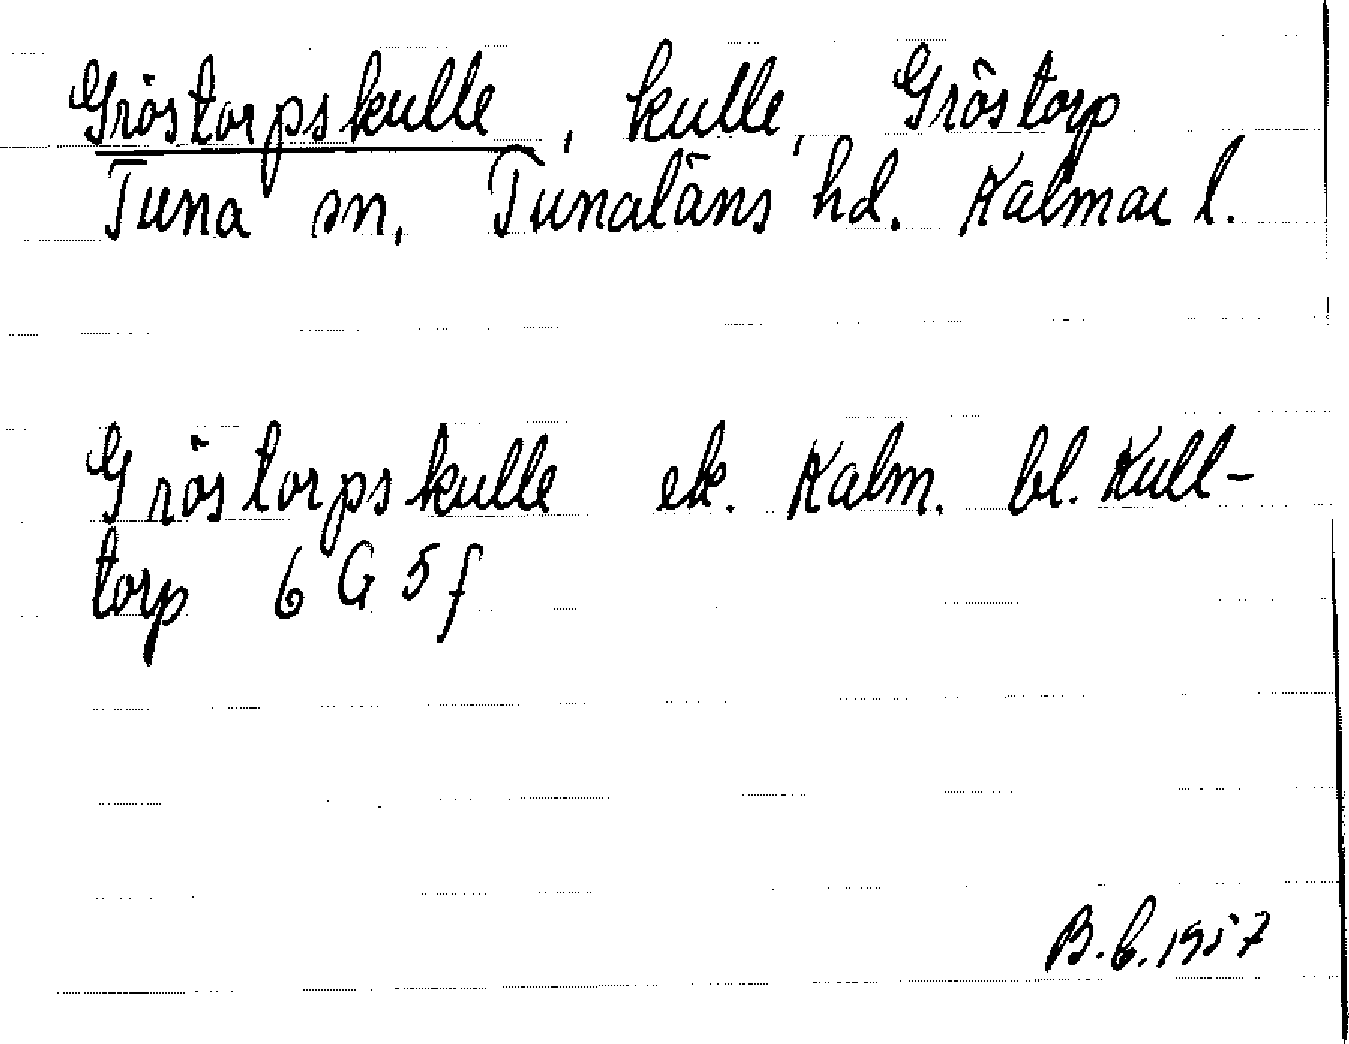 Gröstorpskulle, kulle, Gröstorp
Tuna sn, Tunaläns hd. Kalmar l.
Gröstorpskulle ek. Kalm. bl. Kull-
torp 6 G 5 f
B.L. 1957